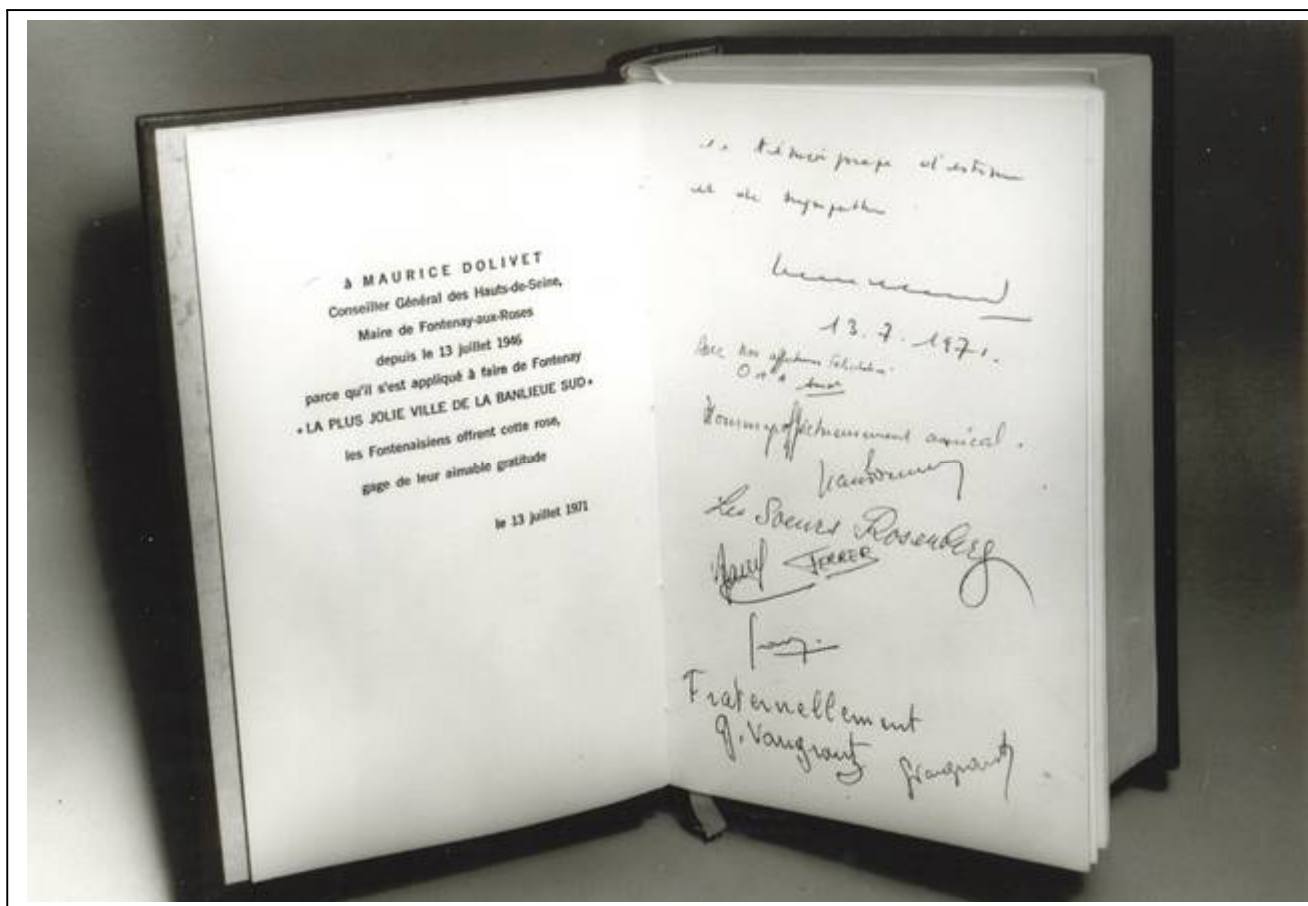 à MAURICE DOLIVET
Conseiller Général des Hauts-de-Seine,
Maire de Fontenay-aux-Roses
depuis le 13 juillet 1946
parce qu'il s'est appliqué à faire de Fontenay
« LA PLUS JOLIE VILLE DE LA BANLIEUE SUD »
les Fontenaisiens offrent cette rose,
gage de leur aimable gratitude
le 13 juillet 1971
témoignage d'estime
et de sympathie
13.7.1971.
amical.
Les Soeurs Rosenberg
FERRER
Fraternellement
G. Vaugrant